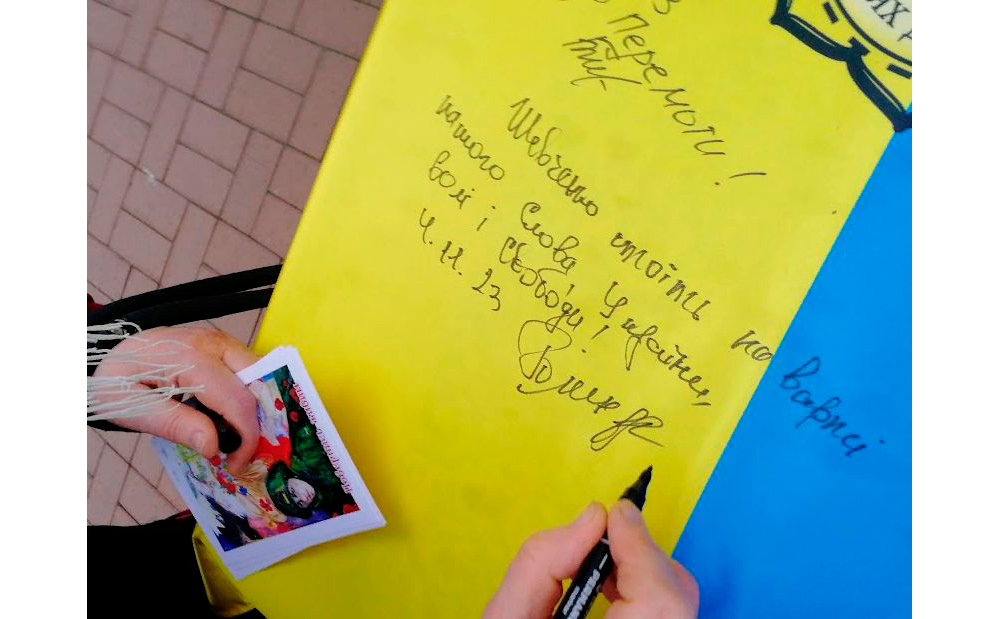 Перемоги!
Шевченко стоїть на варті
нашого Слова України,
волі і Свободи!
4. 11. 23